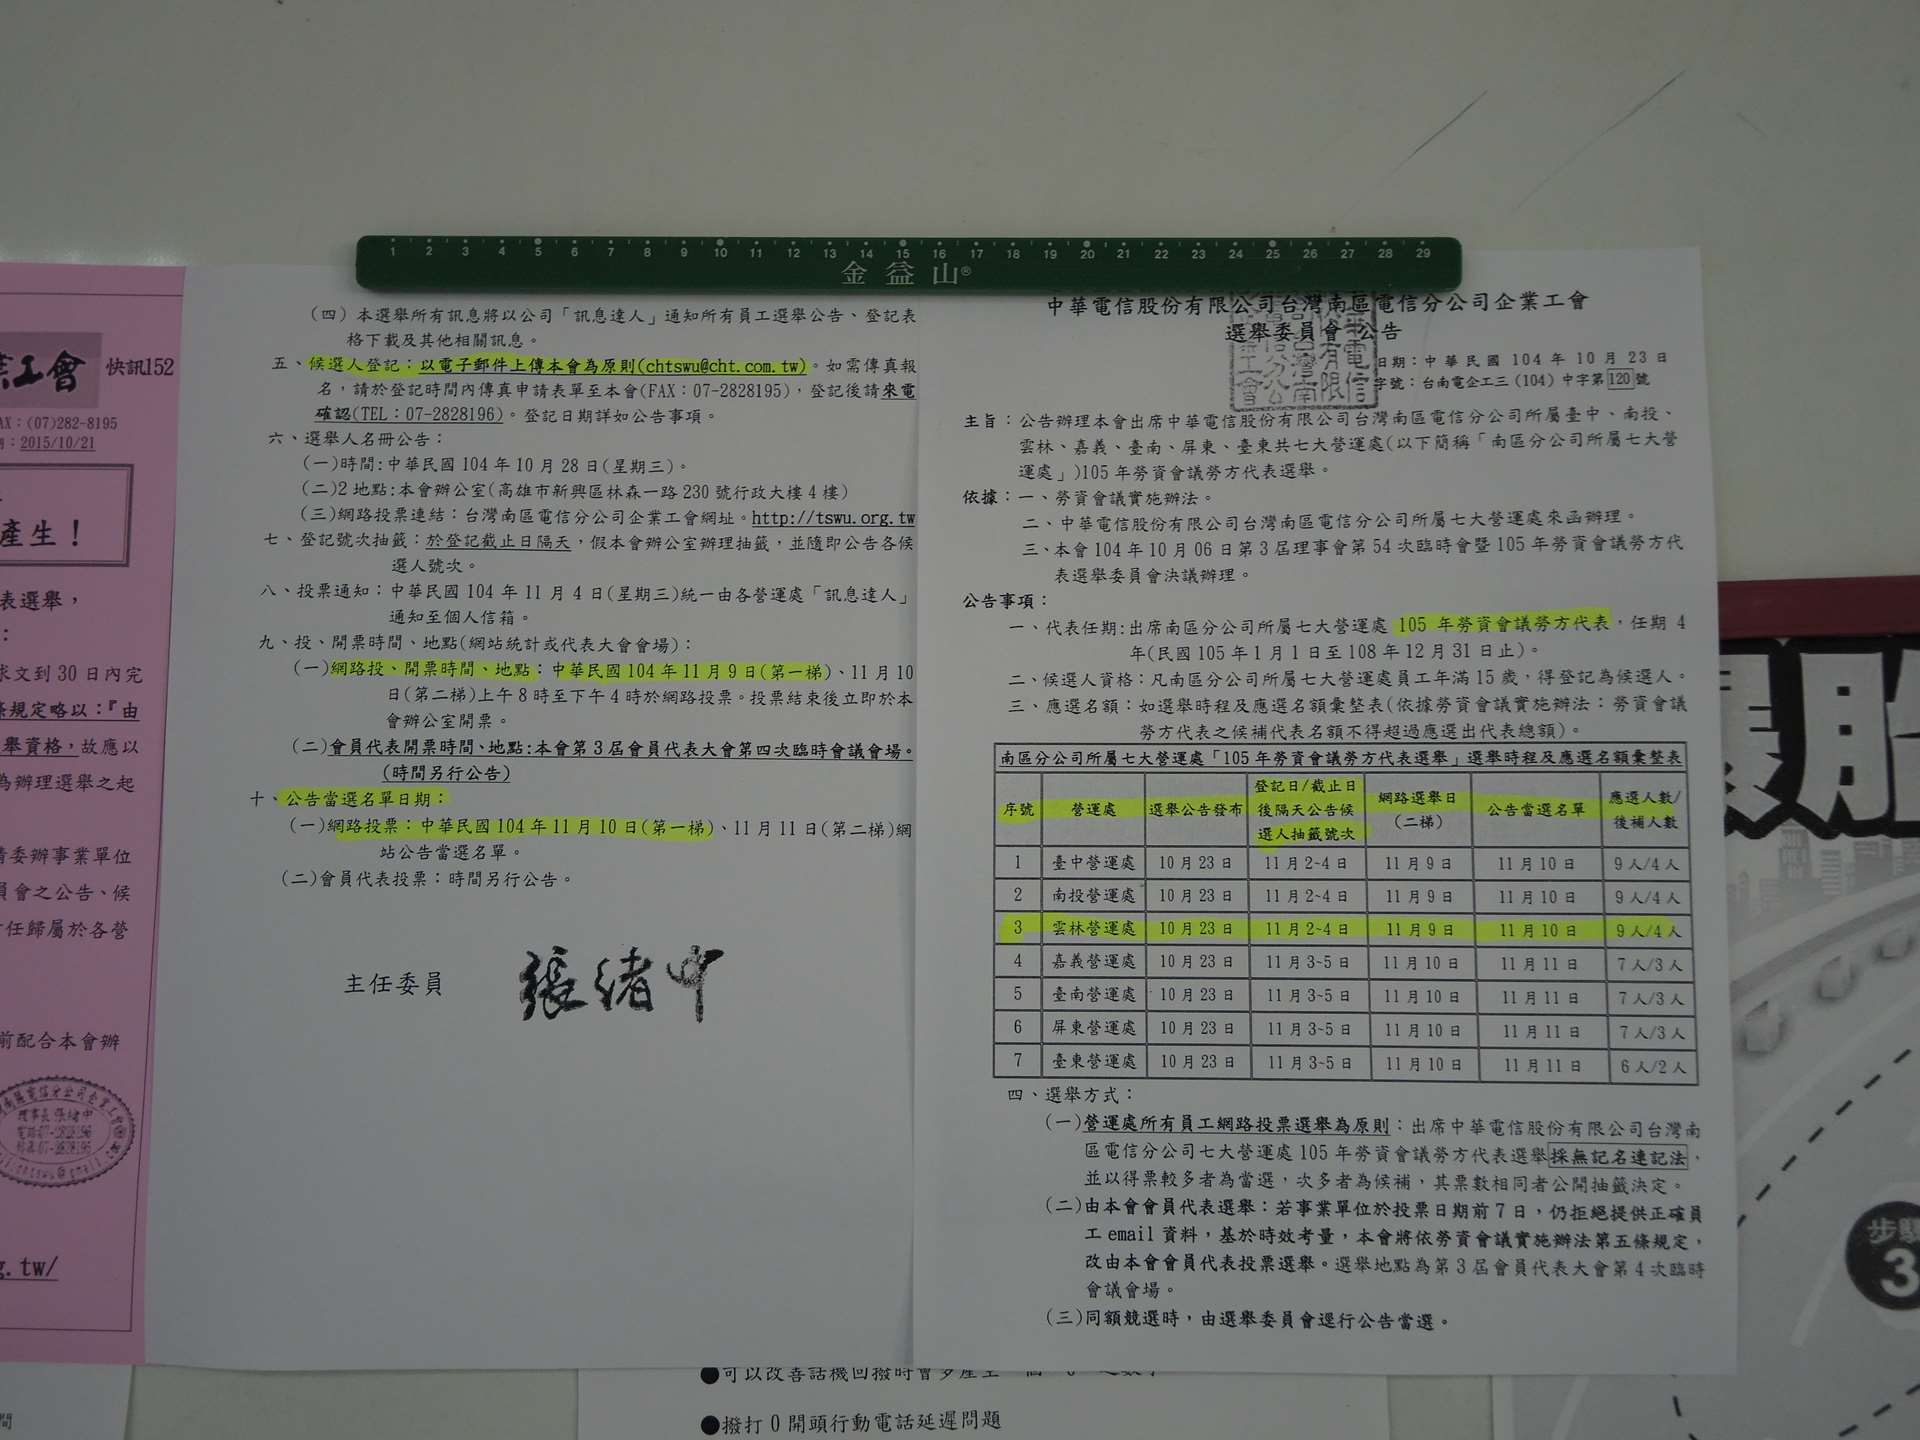 1 2 3 4 5 6 7 8 9 10 11 12 13 14 15 16 17 18 19 20 21 22 23 24 25 26 27 28 29
金益山®
工會 快訊152
AX：(07)282-8195
：2015/10/21
產生！
表選舉，
：
求文到 30 日內完
規定略以：『由
舉資格，故應以
為辦理選舉之起
委辦事業單位
員會之公告、候
任歸屬於各營
前配合本會辦
理事長 張緒中
g.tw/
(四) 本選舉所有訊息將以公司「訊息達人」通知所有員工選舉公告、登記表
格下載及其他相關訊息。
五、候選人登記：以電子郵件上傳本會為原則(chtswu@cht.com.tw)。如需傳真報
名，請於登記時間內傳真申請表單至本會(FAX：07-2828195)，登記後請來電
確認(TEL：07-2828196)。登記日期詳如公告事項。
六、選舉人名冊公告：
(一)時間:中華民國 104 年 10 月 28 日(星期三)。
(二)2 地點:本會辦公室(高雄市新興區林森一路 230 號行政大樓 4 樓)
(三)網路投票連結：台灣南區電信分公司企業工會網址。http://tswu.org.tw
七、登記號次抽籤：於登記截止日隔天，假本會辦公室辦理抽籤，並隨即公告各候
選人號次。
八、投票通知：中華民國 104 年 11 月 4 日(星期三)統一由各營運處「訊息達人」
通知至個人信箱。
九、投、開票時間、地點(網站統計或代表大會會場)：
(一)網路投、開票時間、地點：中華民國 104 年 11 月 9 日(第一梯)、11 月 10
日(第二梯)上午 8 時至下午 4 時於網路投票。投票結束後立即於本
會辦公室開票。
(二)會員代表開票時間、地點:本會第 3 屆會員代表大會第四次臨時會議會場。
(時間另行公告)
十、公告當選名單日期：
(一)網路投票：中華民國 104 年 11 月 10 日(第一梯)、11 月 11 日(第二梯)網
站公告當選名單。
(二)會員代表投票：時間另行公告。
主任委員 張緒中
中華電信股份有限公司台灣南區電信分公司企業工會
選舉委員會 公告
日期：中華民國 104 年 10 月 23 日
字號：台南電企工三 (104) 中字第 120 號
主旨：公告辦理本會出席中華電信股份有限公司台灣南區電信分公司所屬臺中、南投、
雲林、嘉義、臺南、屏東、臺東共七大營運處(以下簡稱「南區分公司所屬七大營
運處」)105 年勞資會議勞方代表選舉。
依據：一、勞資會議實施辦法。
二、中華電信股份有限公司台灣南區電信分公司所屬七大營運處來函辦理。
三、本會 104 年 10 月 06 日第 3 屆理事會第 54 次臨時會暨 105 年勞資會議勞方代
表選舉委員會決議辦理。
公告事項：
一、代表任期:出席南區分公司所屬七大營運處 105 年勞資會議勞方代表，任期 4
年(民國 105 年 1 月 1 日至 108 年 12 月 31 日止)。
二、候選人資格：凡南區分公司所屬七大營運處員工年滿 15 歲，得登記為候選人。
三、應選名額：如選舉時程及應選名額彙整表(依據勞資會議實施辦法：勞資會議
勞方代表之候補代表名額不得超過應選出代表總額)。
南區分公司所屬七大營運處「105 年勞資會議勞方代表選舉」選舉時程及應選名額彙整表
序號 營運處 選舉公告發布 登記日/截止日後隔天公告候選人抽籤號次 網路選舉日(二梯) 公告當選名單 應選人數/後補人數
1 臺中營運處 10 月 23 日 11 月 2~4 日 11 月 9 日 11 月 10 日 9 人/4 人
2 南投營運處 10 月 23 日 11 月 2~4 日 11 月 9 日 11 月 10 日 9 人/4 人
3 雲林營運處 10 月 23 日 11 月 2~4 日 11 月 9 日 11 月 10 日 9 人/4 人
4 嘉義營運處 10 月 23 日 11 月 3~5 日 11 月 10 日 11 月 11 日 7 人/3 人
5 臺南營運處 10 月 23 日 11 月 3~5 日 11 月 10 日 11 月 11 日 7 人/3 人
6 屏東營運處 10 月 23 日 11 月 3~5 日 11 月 10 日 11 月 11 日 7 人/3 人
7 臺東營運處 10 月 23 日 11 月 3~5 日 11 月 10 日 11 月 11 日 6 人/2 人
四、選舉方式：
(一)營運處所有員工網路投票選舉為原則：出席中華電信股份有限公司台灣南
區電信分公司七大營運處 105 年勞資會議勞方代表選舉採無記名連記法，
並以得票較多者為當選，次多者為候補，其票數相同者公開抽籤決定。
(二)由本會會員代表選舉：若事業單位於投票日期前 7 日，仍拒絕提供正確員
工 email 資料，基於時效考量，本會將依勞資會議實施辦法第五條規定，
改由本會會員代表投票選舉。選舉地點為第 3 屆會員代表大會第 4 次臨時
會議會場。
(三)同額競選時，由選舉委員會逕行公告當選。
●可以改善話機回撥時會多產生
●撥打 0 開頭行動電話延遲問題
步驟
3